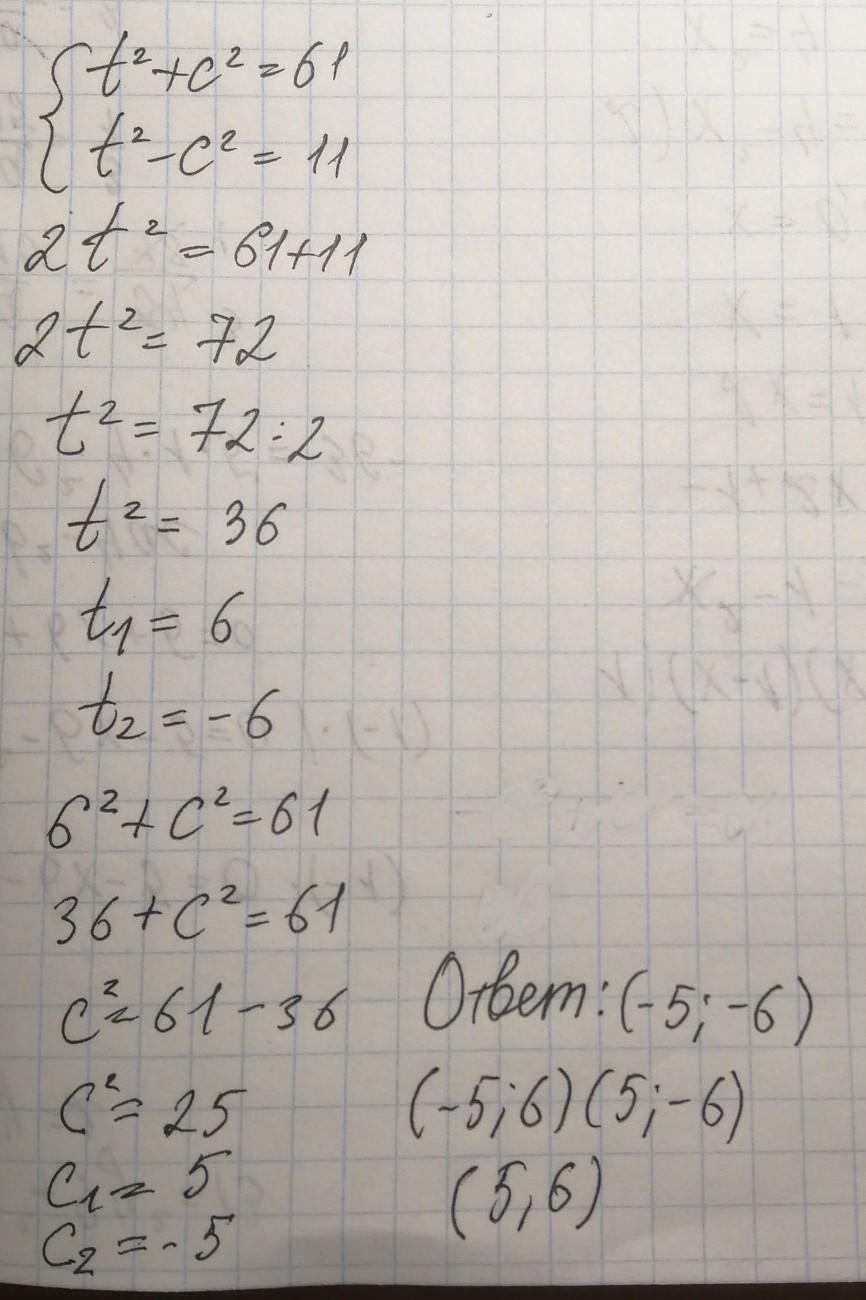 t²+c²=61
t²-c²=11
2t²=61+11
2t²=72
t²=72:2
t²=36
t₁=6
t₂=-6
6²+c²=61
36+c²=61
c²=61-36
c²=25
c₁=5
c₂=-5
Ответ:(-5;-6)
(-5;6)(5;-6)
(5,6)